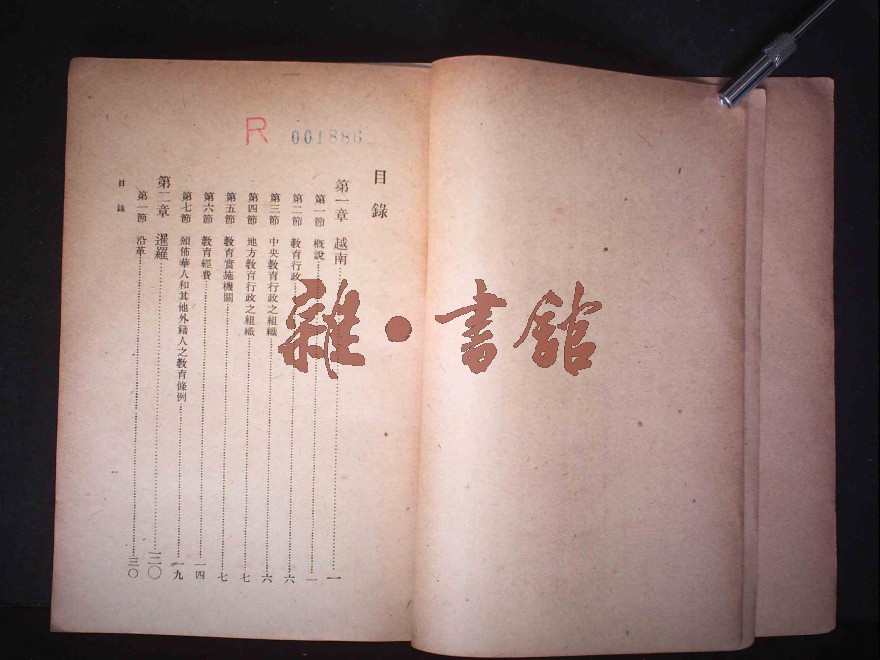 R 001886
目錄
第一章 越南……一
第一節 概說……一
第二節 教育行政……六
第三節 中央教育行政之組織……六
第四節 地方教育行政之組織……七
第五節 教育實施機關……七
第六節 教育經費……一四
第七節 頒佈華人和其他外籍人之教育條例……一九
第二章 暹羅……三〇
第一節 沿革……三〇
目錄
一
雜·書館